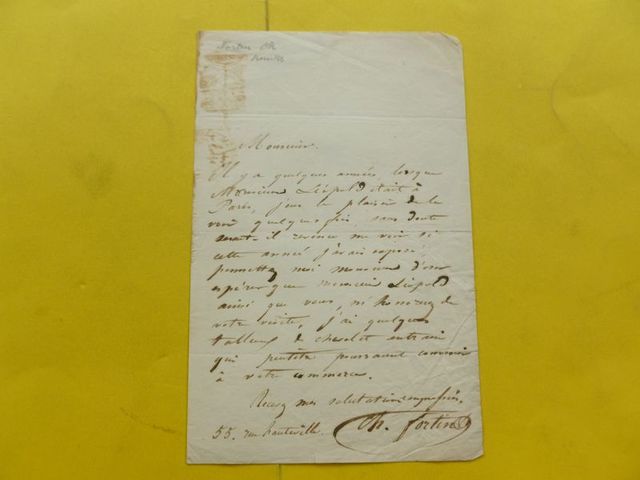 Fortin Ch
Monsieur.
Il y a quelques années, lorsque
Monsieur Léopold était à
Paris, j'eus le plaisir de le
voir quelques fois, sans doute
serait-il revenu me voir si
cette année j'avais exposé;
permettez moi monsieur d'oser
espérer que monsieur Léopold
ainsi que vous, m'honorez de
votre visite, j'ai quelques
tableaux de chevalet en train
qui peutêtre pourraient convenir
à votre commerce.
Recevez mes salutations empressées.
55. rue hauteville. Ch. fortin